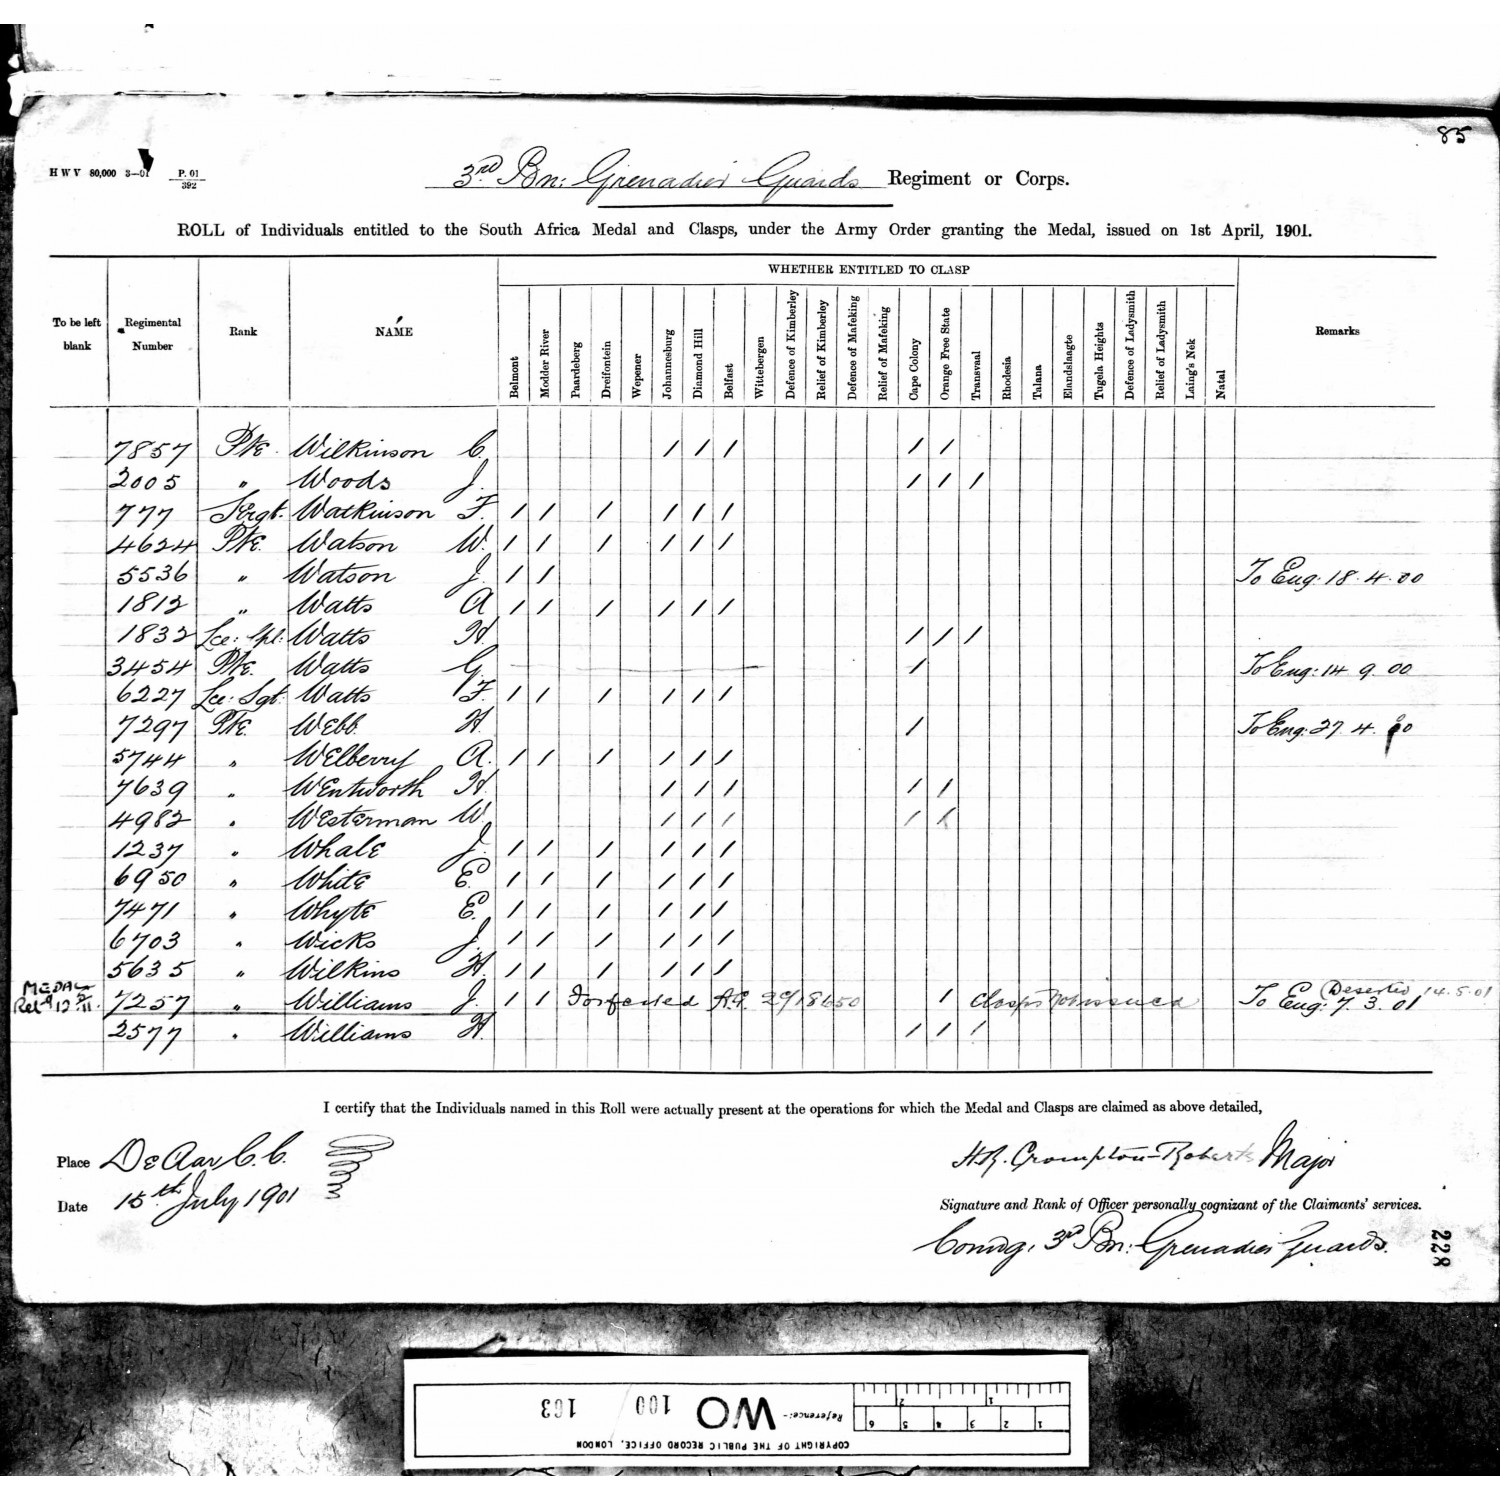 85
HWV 80,000 3—01 P. 01
392
3rd Bn: Grenadier Guards Regiment or Corps.
ROLL of Individuals entitled to the South Africa Medal and Clasps, under the Army Order granting the Medal, issued on 1st April, 1901.
WHETHER ENTITLED TO CLASP
To be left blank Regimental Number Rank NAME Belmont Modder River Paardeberg Dreifontein Wepener Johannesburg Diamond Hill Belfast Wittebergen Defence of Kimberley Relief of Kimberley Defence of Mafeking Relief of Mafeking Cape Colony Orange Free State Transvaal Rhodesia Talana Elandslaagte Tugela Heights Defence of Ladysmith Relief of Ladysmith Laing's Nek Natal Remarks
7857 Pte. Wilkinson C. / / / / /
2005 " Woods J. / / /
777 Sergt. Watkinson F. / / / / / /
4624 Pte. Watson W. / / / / / /
5536 " Watson J. / / To Eng: 18.4.00
1812 " Watts A / / / / / /
1832 Lce: Cpl: Watts H. / / /
3454 Pte. Watts G. / To Eng: 14 9.00
6227 Lce: Sgt: Watts F. / / / / / /
7297 Pte. Webb. H. / To Eng: 27.4.00
5744 " Welberry A. / / / / / /
7639 " Wentworth H. / / / / /
4982 " Westerman W. / / / / /
1237 " Whale J. / / / / / /
6950 " White E. / / / / / /
7471 " Whyte E. / / / / / /
6703 " Wicks J. / / / / / /
5635 " Wilkins H. / / / / / /
MEDAL
7257 " Williams J. / / Forfeited / Clasps not issued To Eng: 7.3.01 (Deserted 14.5.01
2577 " Williams H. / / /
I certify that the Individuals named in this Roll were actually present at the operations for which the Medal and Clasps are claimed as above detailed,
Place De Aar C.C.
H.R. Crompton-Roberts Major
Date 15th July 1901
Signature and Rank of Officer personally cognizant of the Claimants' services.
Comdg. 3rd Bn: Grenadier Guards.
228
COPYRIGHT OF THE PUBLIC RECORD OFFICE, LONDON
Reference:- WO 100 163
1 2 3 4 5 6
1 2